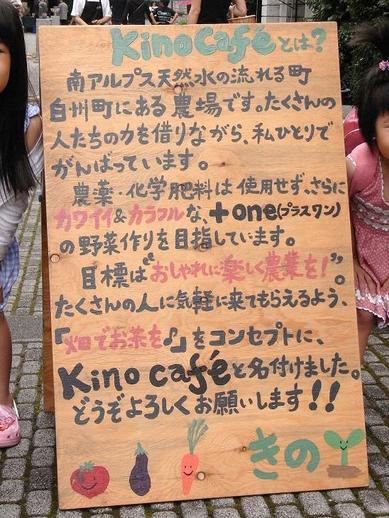 Kino Caféとは?
南アルプス天然水の流れる町
白州町にある農場です。たくさんの
人たちの力を借りながら、私ひとりで
がんばっています。
農薬・化学肥料は使用せず、さらに
カワイイ&カラフルな、+one(プラスワン)
の野菜作りを目指しています。
目標は"おしゃれに楽しく農業を!"。
たくさんの人に気軽に来てもらえるよう、
「畑でお茶を♪」をコンセプトに、
Kino caféと名付けました。
どうぞよろしくお願いします!!
きの